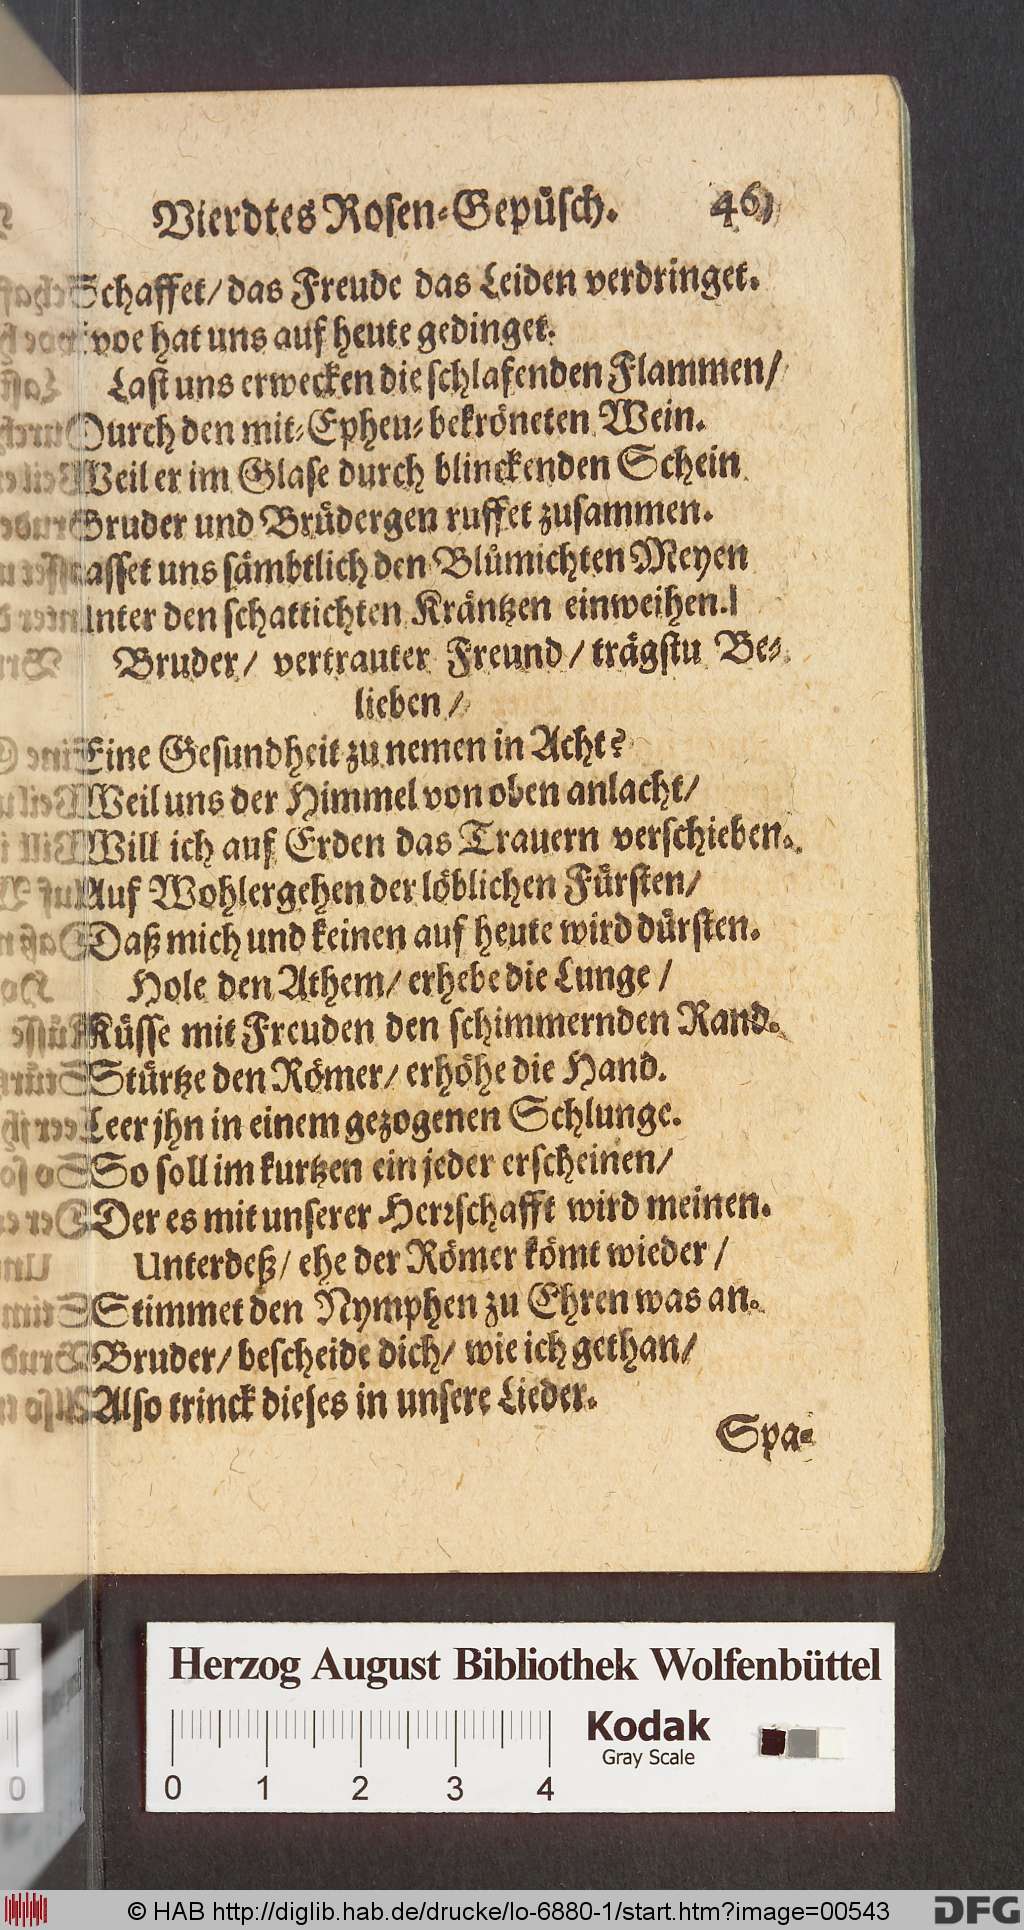 Vierdtes Rosen-Gepüsch. 461
Schaffet/ das Freude das Leiden verdringet.
voe hat uns auf heute gedinget.
Last uns erwecken die schlafenden Flammen/
Durch den mit-Epheu-bekröneten Wein.
Weil er im Glase durch blinckenden Schein
Bruder und Brüdergen ruffet zusammen.
asset uns sämbtlich den Blümichten Meyen
Unter den schattichten Kräntzen einweihen.
Bruder/ vertrauter Freund/ trägstu Be-
lieben/
Eine Gesundheit zu nemen in Acht?
Weil uns der Himmel von oben anlacht/
Will ich auf Erden das Trauern verschieben.
Auf Wohlergehen der löblichen Fürsten/
Daß mich und keinen auf heute wird dürsten.
Hole den Athem/ erhebe die Lunge/
Küsse mit Freuden den schimmernden Rand.
Stürtze den Römer/ erhöhe die Hand.
Leer jhn in einem gezogenen Schlunge.
So soll im kurtzen ein jeder erscheinen/
Der es mit unserer Herrschafft wird meinen.
Unterdeß/ ehe der Römer kömt wieder/
Stimmet den Nymphen zu Ehren was an.
Bruder/ bescheide dich/ wie ich gethan/
Also trinck dieses in unsere Lieder.
Spa-
Herzog August Bibliothek Wolfenbüttel
Kodak
Gray Scale
0 1 2 3 4
© HAB http://diglib.hab.de/drucke/lo-6880-1/start.htm?image=00543
DFG